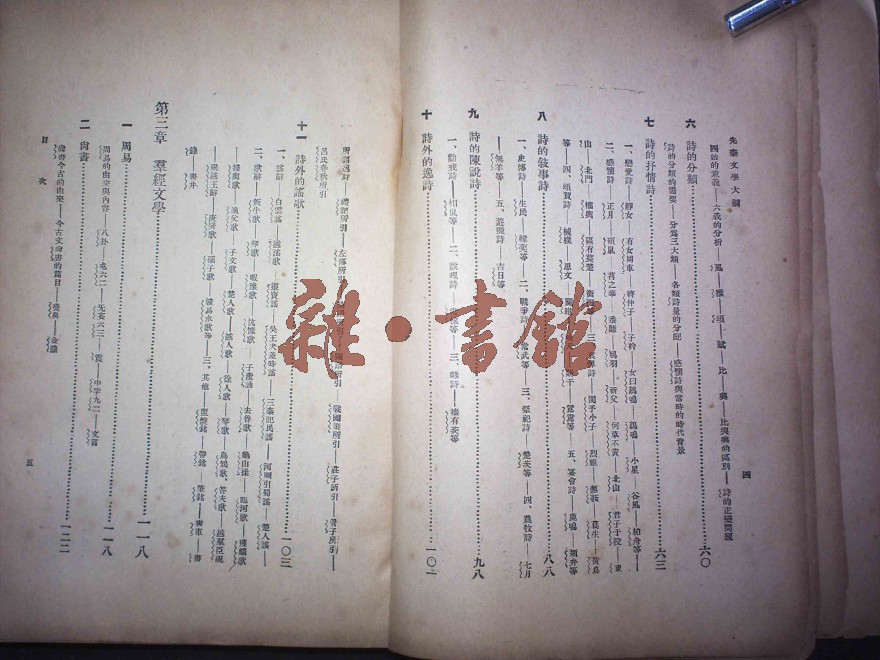 先秦文學大綱
四
四始的意義——六義的分析——風——雅——頌——賦——比——興——比與興的區別——詩的正變問題
六 詩的分類 六〇
詩的分類的需要——分爲三大類——各類詩量的分配——感懷詩與當時的時代背景
七 詩的抒情詩 六三
一、戀愛詩——靜女——有女同車——將仲子——子衿——女曰雞鳴——雞鳴——小星——谷風——柏舟等——
二、感懷詩——正月——碩鼠——苕之華——鴇羽——祈父——何草不黃——北山——君子于役——東
山——北門——權輿——隰有萇楚——閔予小子——烈祖——葛生——黃鳥
等——四、頌賀詩——棫樸——思文——鴛鴦等——五、宴會詩——鹿鳴——頍弁等
八 詩的敘事詩 八八
一、史傳詩——生民——韓奕等——二、戰爭詩——常武等——三、祭祀詩——楚茨等——四、農牧詩——七月
——無羊等——五、遊獵詩——吉日等
九 詩的陳說詩 九八
一、勸戒詩——相鼠等——二、說理詩——三、雜詩——牆有茨等
十 詩外的逸詩
所謂逸詩——禮記所引——左傳所引——國語所引——戰國策所引——莊子所引——管子所引——
呂氏春秋所引
十一 詩外的謠歌 一〇三
一、謠辭——白雲謠——靈寶謠——吳王夫差時謠——三秦記民謠——河圖引蜀謠——楚人謠——
二、歌辭——飯牛歌——琴歌——暇豫歌——子產誦——去魯歌——龜山操——臨河歌——獲麟歌
——接輿歌——漁父歌——子文歌——楚人歌——越人歌——徐人歌——琴歌——烏鵲歌、答夫歌——越羣臣祝
——祝越王辭——庚癸歌——孺子歌——三、其他——盥盤銘——帶銘——筆銘——書車——書
鋒——書井
第三章 羣經文學 一一八
一 周易 一一八
周易的由來與內容——八卦——屯六二——震——中孚九二——文言
二 尚書 一二二
尚書今古的由來——今古文尚書的篇目——堯典——金縢
目次
五
雜·書館